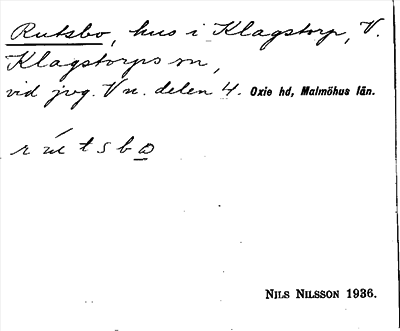 Rutsbo, hus i Klagstorp, V.
Klagstorps sn,
vid jvg. V n. delen 4. Oxie hd, Malmöhus län.
r ú t s b o
NILS NILSSON 1936.